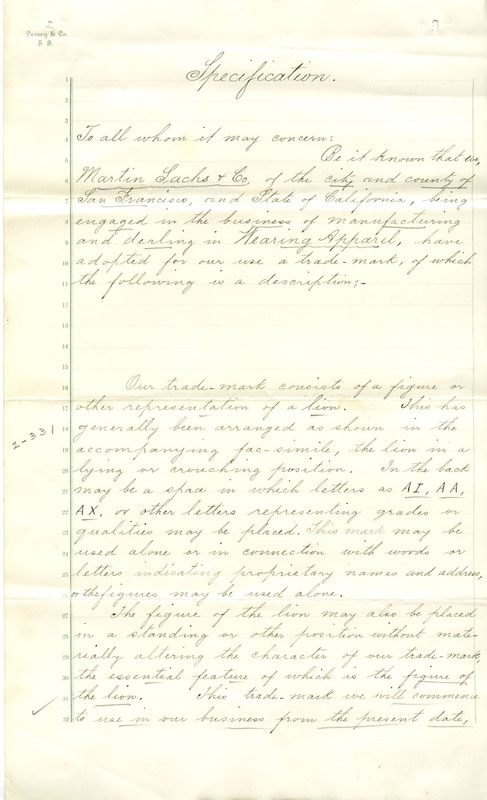 Dewey & Co.
S. F.
Specification.
1
2
3
4
To all whom it may concern:
5
Be it known that we,
6
Martin Sachs & Co. of the city and county of
7
San Francisco, and State of California, being
8
engaged in the business of manufacturing
9
and dealing in Wearing Apparel, have
10
adopted for our use a trade-mark, of which
11
the following is a description;-
12
13
14
15
16
Our trade-mark consists of a figure or
17
other representation of a lion. This has
18
generally been arranged as shown in the
19
accompanying fac-simile, the lion in a
20
lying or crouching position. In the back
21
may be a space in which letters as AI, AA,
22
AX, or other letters representing grades or
23
qualities may be placed. This mark may be
24
used alone or in connection with words or
25
letters indicating proprietary names and address,
26
or the figures may be used alone.
27
The figure of the lion may also be placed
28
in a standing or other position without mate-
29
rially altering the character of our trade-mark,
30
the essential feature of which is the figure of
31
the lion. This trade-mark we will commence
32
to use in our business from the present date,
2-331